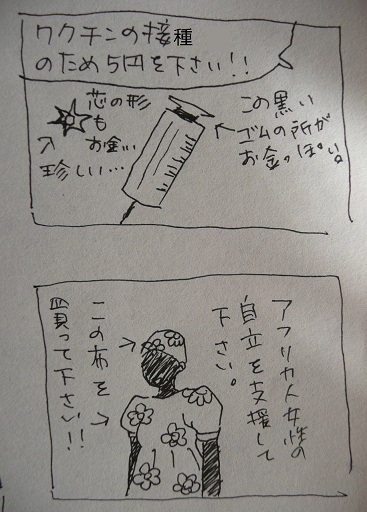 ワクチンの接種
のため5円を下さい!!
この黒い
ゴムの所が
お金っぽい。
芯の形
も
お金…
珍しい…
アフリカ人女性の
自立を支援して
下さい。
この布を
買って下さい!!